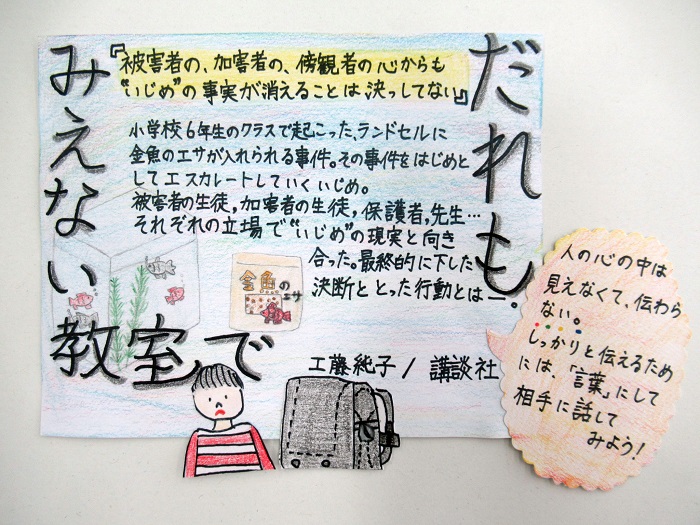 だれも
みえない
教室で
『被害者の、加害者の、傍観者の心からも
"いじめ"の事実が消えることは決っしてない』
小学校6年生のクラスで起こった、ランドセルに
金魚のエサが入れられる事件。その事件をはじめと
してエスカレートしていくいじめ。
被害者の生徒,加害者の生徒,保護者,先生…
それぞれの立場で"いじめ"の現実と向き
合った。最終的に下した
決断ととった行動とは―。
金魚の
エサ
工藤純子/講談社
人の心の中は
見えなくて、伝わら
ない。
しっかりと伝えるため
には、「言葉」にして
相手に話して
みよう!